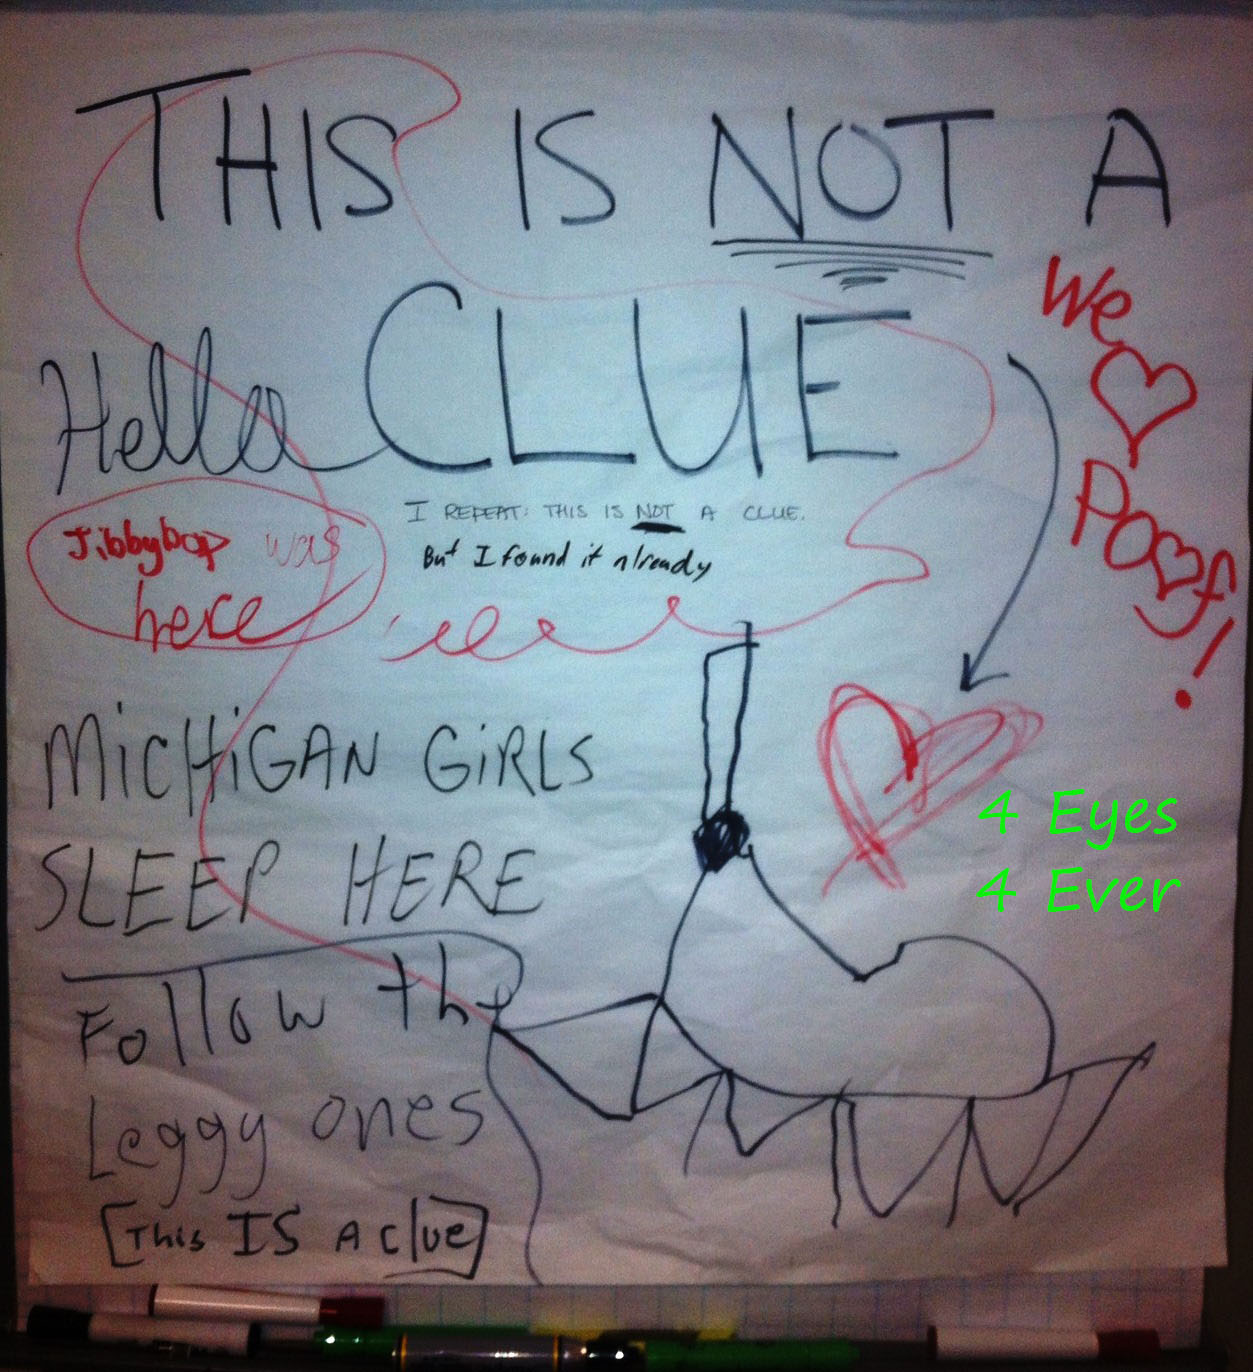 THIS IS NOT A
CLUE
We ♥
Poof!
Hello
I REPEAT: THIS IS NOT A CLUE.
But I found it already
Jibbybop was
here
MiCHiGAN GiRLS
SLEEP HERE
4 Eyes
4 Ever
Follow the
Leggy ones
[This IS A clue]